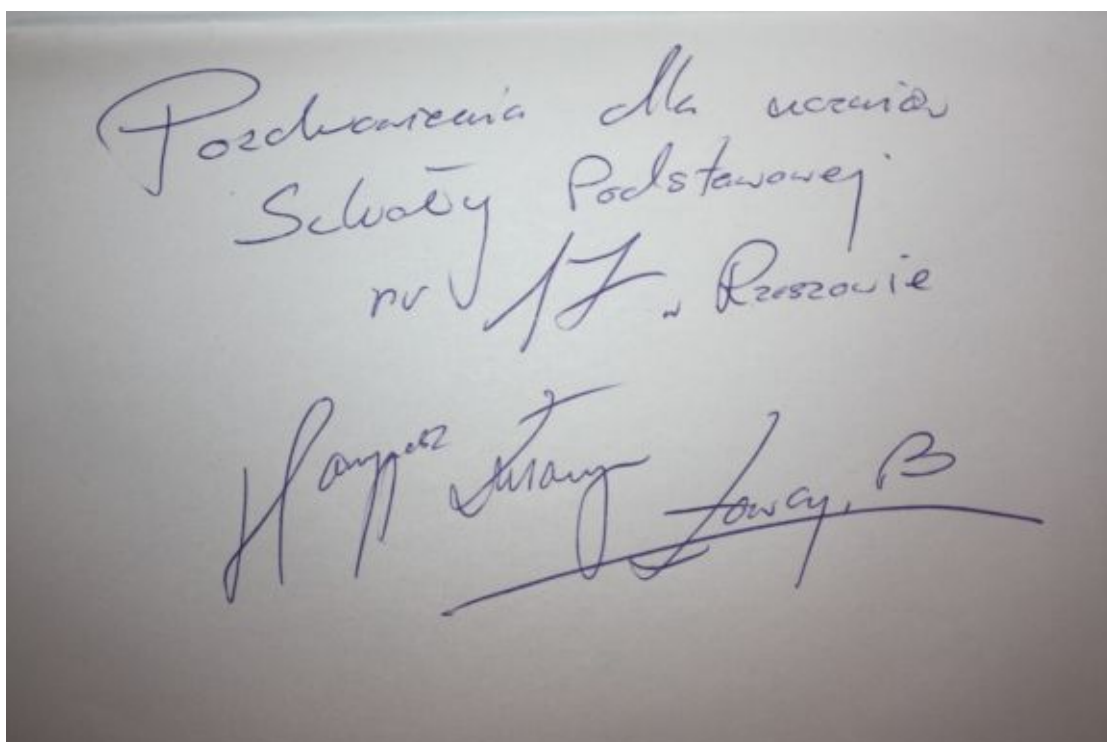 Pozdrowienia dla uczniów
Szkoły Podstawowej
nr 17 w Rzeszowie
Łowcy. B